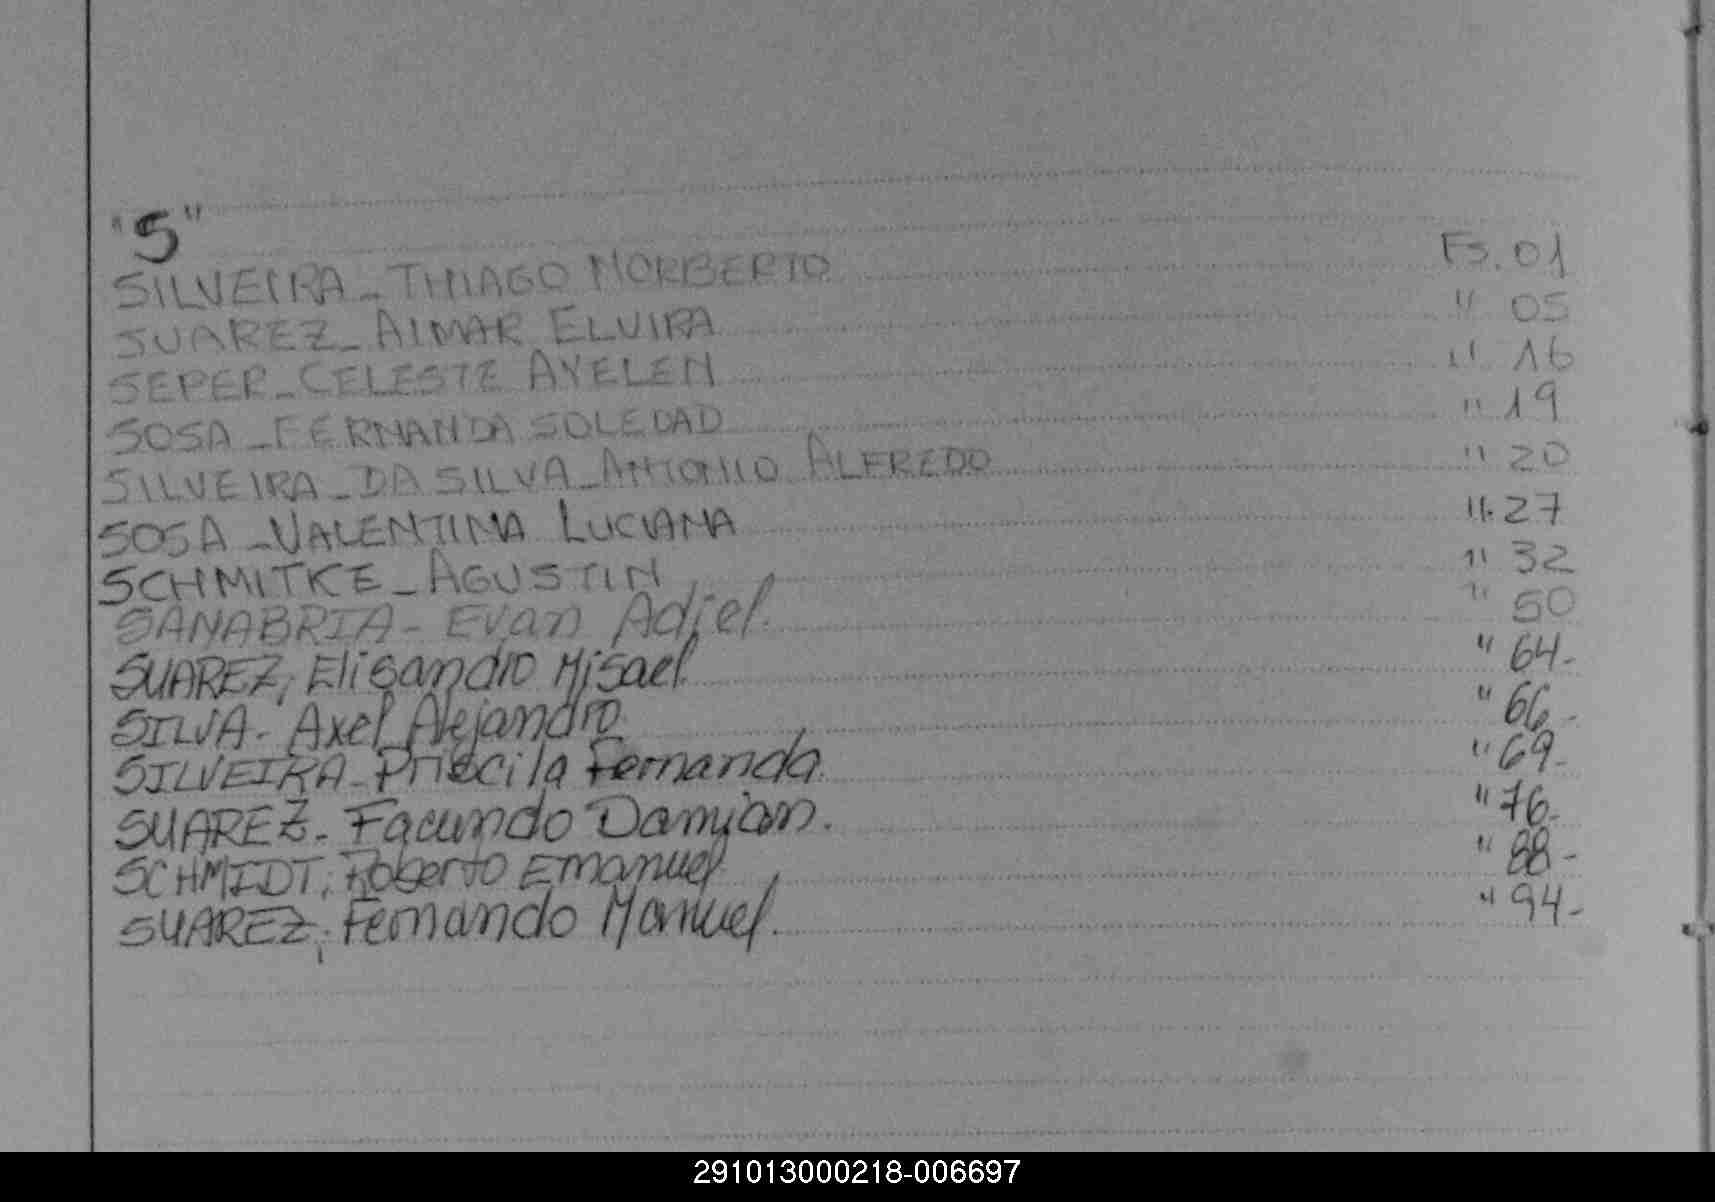 "S"
SILVEIRA_THIAGO NORBERTO Fs. 01
SUAREZ_AIMAR ELVIRA " 05
SEPER_CELESTE AYELEN " 16
SOSA_FERNANDA SOLEDAD " 19
SILVEIRA_DA SILVA_ANTONIO ALFREDO " 20
SOSA_VALENTINA LUCIANA " 27
SCHMITKE_AGUSTIN " 32
SANABRIA- Evan Adiel. " 50
SUAREZ, Elisandro Misael. " 64-
SILVA- Axel Alejandro " 66-
SILVEIRA-Priscila Fernanda. " 69-
SUAREZ- Facundo Damian. " 76-
SCHMIDT, Roberto Emanuel " 88-
SUAREZ, Fernando Manuel. " 94-
291013000218-006697